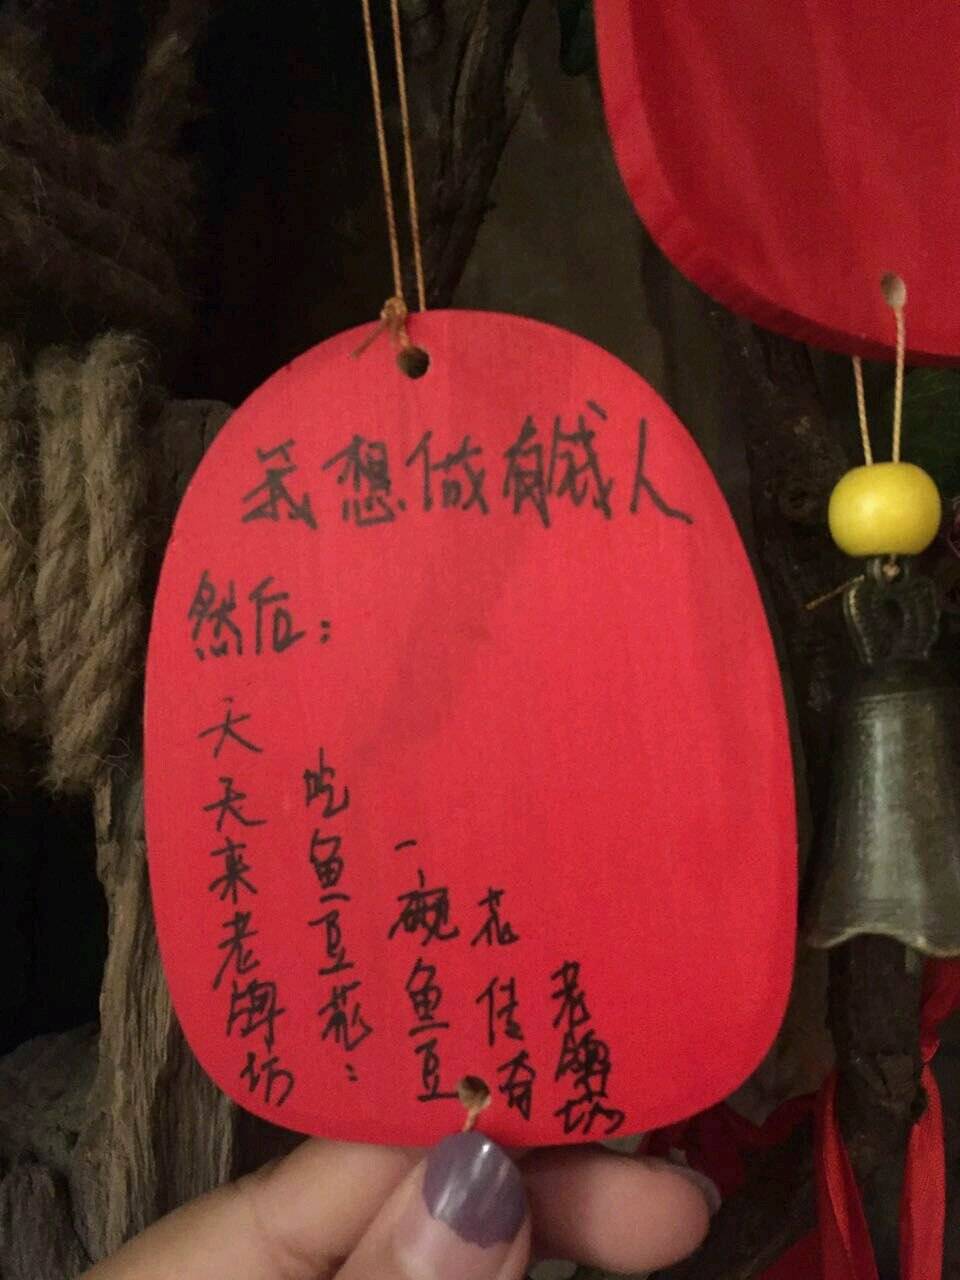 我想做有钱人
然后：
天天来老牌坊
吃鱼豆花：
一碗鱼豆
花佳奇
老牌坊